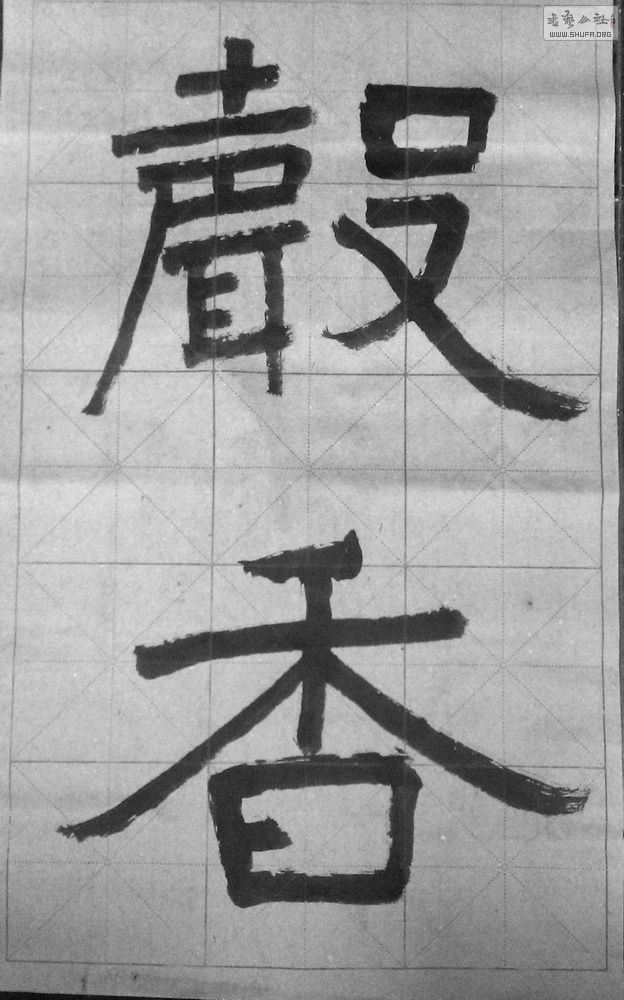 聲香
书艺公社
WWW.SHUFA.ORG